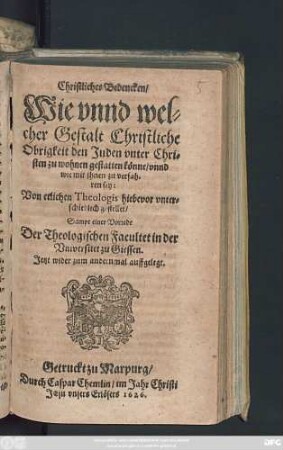 5
Christliches Bedencken/
Wie vnnd wel-
cher Gestalt Christliche
Obrigkeit den Juden vnter Chri-
sten zu wohnen gestatten könne/vnnd
wie mit jhnen zu verfah-
ren sey:
Von etlichen Theologis hiebevor vnter-
schiedlich gestellet/
Sampt einer Vorrede
Der Theologischen Facultet in der
Vniversitet zu Giessen.
Jetzt wider zum andernmal auffgelegt.
Getruckt zu Marpurg/
Durch Caspar Chemlin/ im Jahr Christi
Jesu vnsers Erlösers 1626.